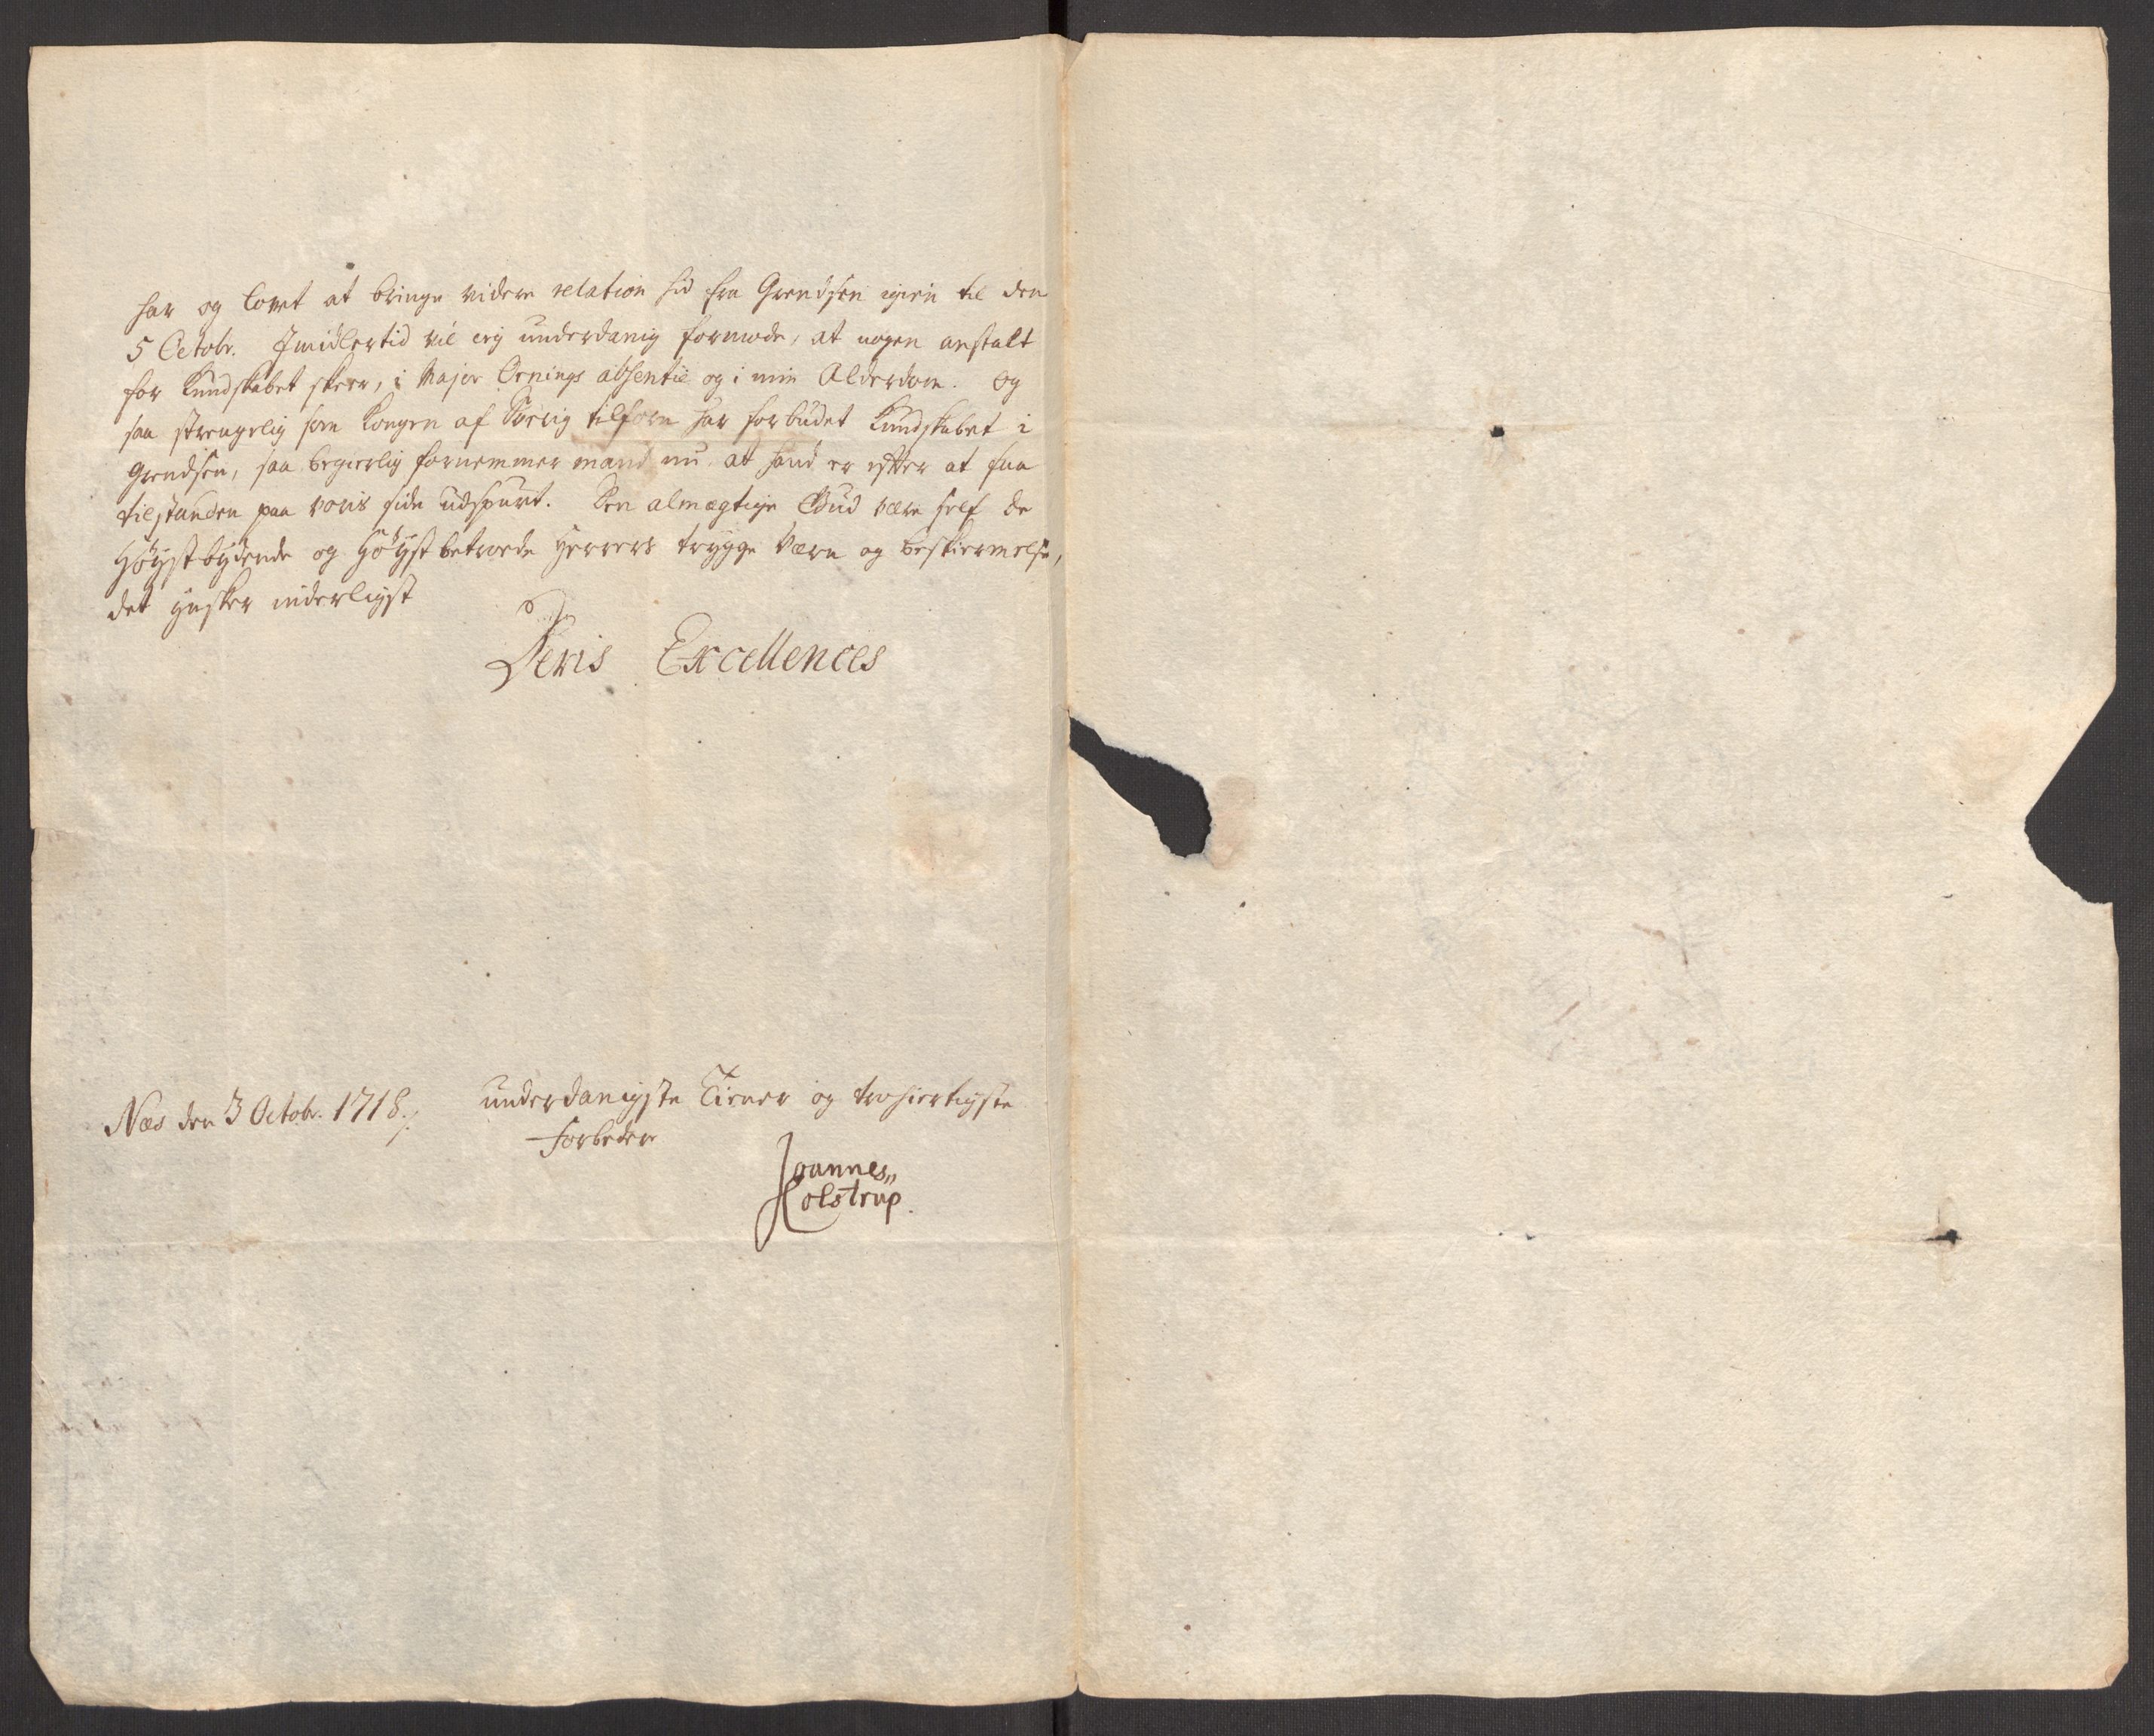 har og lovet at bringe videre relation hid fra Grendsen igien til den
5 Octobr. Imidlertid vil eig underdanig formode, at nogen anstalt
for Kundskabet skeer, i Major Ornings absentie og i min Alderdom. Og
saa strengelig som Kongen af Sverig tilforn har forbudet Kundskabet i
Grendsen, saa begierlig fornemmer mand nu at hand er efter at faa
tilstanden paa voris side udspurt. Den almægtige Gud være self de
Höystbydende og Höystbetroede Herrers trygge Værn og beskiermelse,
det ynsker inderligst
Deris Excellences
Næs den 3 Octobr. 1718./.
underdanigste Tiener og trohiertigste
Forbeder
Joannes
Colstrup.